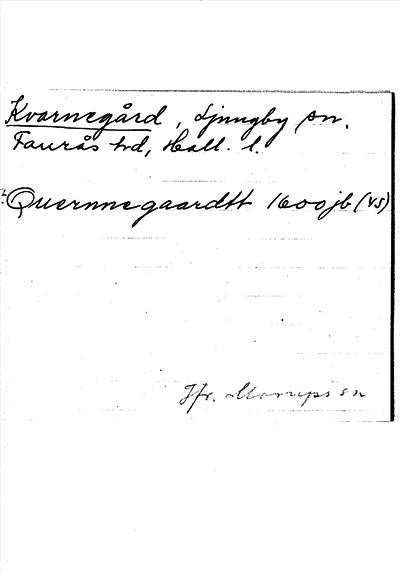 Kvarnegård, Ljungby sn.
Faurås hd, Hall. l.
Quernnegaardtt 1600 jb (vs)
Jfr. Morups sn